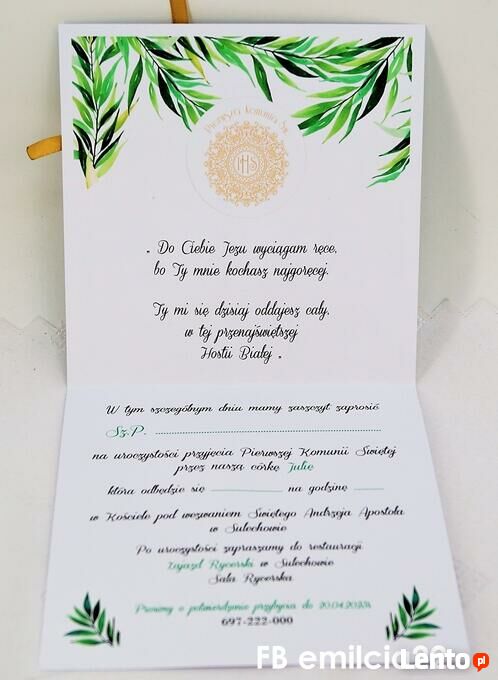 Pierwsza Komunia Św.
IHS
„ Do Ciebie Jezu wyciągam ręce,
bo Ty mnie kochasz najgoręcej.
Ty mi się dzisiaj oddajesz cały,
w tej przenajświętszej
Hostii Białej „
W tym szczególnym dniu mamy zaszczyt zaprosić
Sz.P. ................................................
na uroczystości przyjęcia Pierwszej Komunii Świętej
przez naszą córkę Julię
która odbędzie się ____________ na godzinę _____
w Kościele pod wezwaniem Świętego Andrzeja Apostoła
w Sulechowie
Po uroczystości zapraszamy do restauracji
Zajazd Rycerski w Sulechowie
Sala Rycerska
Prosimy o potwierdzenie przybycia do 20.04.2023r
697-222-000
FB emilcia
Lento.pl